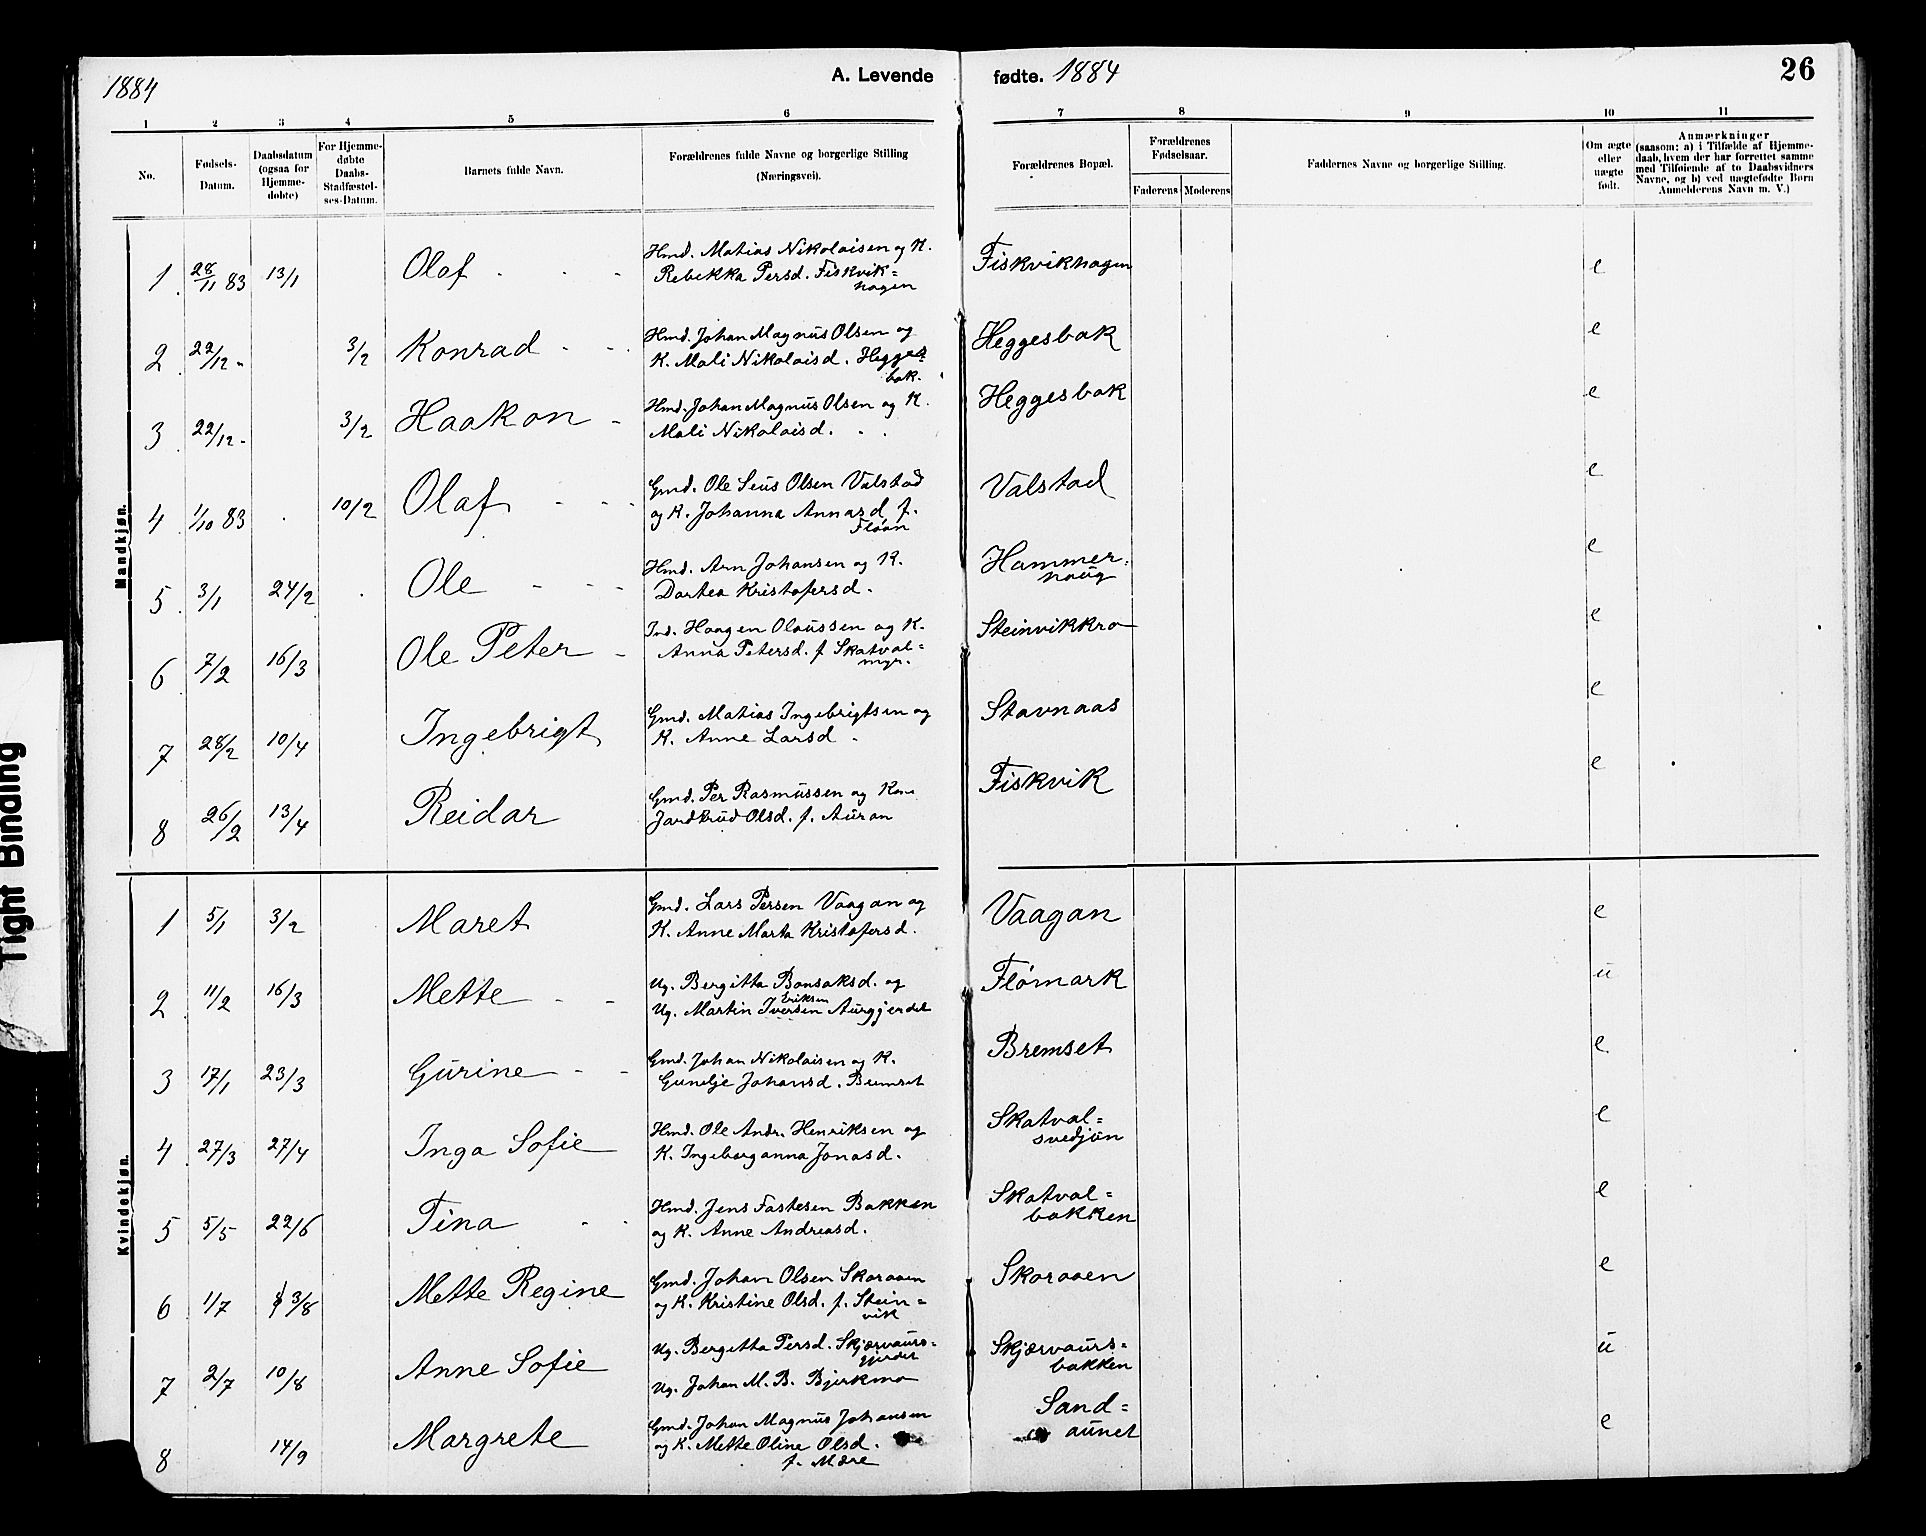 1884
A. Levende
fødte. 1884
26
1 2 3 4 5 6 7 8 9 10 11
No.
Fødsels-
Datum.
Daabsdatum
(ogsaa for
Hjemme-
døbte)
For Hjemme-
døbte
Daabs-
Stadfæstel-
ses-Datum.
Barnets fulde Navn.
Forældrenes fulde Navne og borgerlige Stilling
(Næringsvei).
Forældrenes Bopæl.
Forældrenes
Fødselsaar.
Faderens Moderens
Faddernes Navne og borgerlige Stilling.
Om ægte
eller
uægte
født.
Anmærkninger
(saasom: a) i Tilfælde af Hjemme-
daab, hvem der har forrettet samme
med Tilføiende af to Daabsvidners
Navne, og b) ved uægtefødte Børn
Anmelderens Navn m. V.)
Mandkjøn.
1 28/11 83 13/1 Olaf Hmd. Matias Nikolaisen og K. Fiskvikhagen e
Rebekka Persd. Fiskvik=
hagen
2 22/12 - 3/2 Konrad Hmd. Johan Magnus Olsen og Heggesbak e
K. Mali Nikolaisd. Hegges=
bak.
3 22/12 - 3/2 Haakon Hmd. Johan Magnus Olsen og K. Heggesbak e
Mali Nikolaisd.
4 1/10 83 10/2 Olaf Gmd. Ole Seus Olsen Valstad Valstad e
og K. Johanna Annasd f.
Fløan
5 3/1 24/2 Ole Hmd. Arn Johansen og K. Hammer= e
Dortea Kristofersd. haug
6 7/2 16/3 Ole Peter Ind. Haagen Olaussen og K. Steinvikkro e
Anna Petersd. f Skatval=
myr.
7 28/2 10/4 Ingebrigt Gmd. Matias Ingebrigtsen og Stavnaas e
K. Anne Larsd
8 26/2 13/4 Reidar Gmd. Per Rasmussen og Kone Fiskvik e
Jardtrud Olsd. f. Auran
Kvindekjøn.
1 5/1 3/2 Maret Gmd. Lars Persen Vaagan og Vaagan e
K. Anne Marta Kristofersd.
2 11/2 16/3 Mette Ug. Bergitta Bonsaksd. og Flömark u
Eriksen
Ug. Martin Iversen Aurgjerdet
3 17/1 23/3 Gurine Gmd. Johan Nikolaisen og K. Bremset e
Gunelje Johansd. Bremset
4 27/3 27/4 Inga Sofie Hmd. Ole Andr. Henriksen og Skatval= e
K. Ingeborganna Jonasd. svedjan
5 5/5 22/6 Tina Hmd. Jens Fastesen Bakken Skatval= e
og K. Anne Andreasd. bakken
6 1/7 3/8 Mette Regine Gmd. Johan Olsen Skaraaen Skoraaen e
og K. Kristine Olsd. f. Stein=
vik
7 2/7 10/8 Anne Sofie Ug. Bergitta Persd. Skjærvaurs= Skjærvaurs= u
gjerdet bakken
Ug. Johan M. B. Bjerkmo
8 14/9 Margrete Gmd. Johan Magnus Johansen Sand= e
og K. Mette Oline Olsd. aunet
f. Mære
Tight Binding